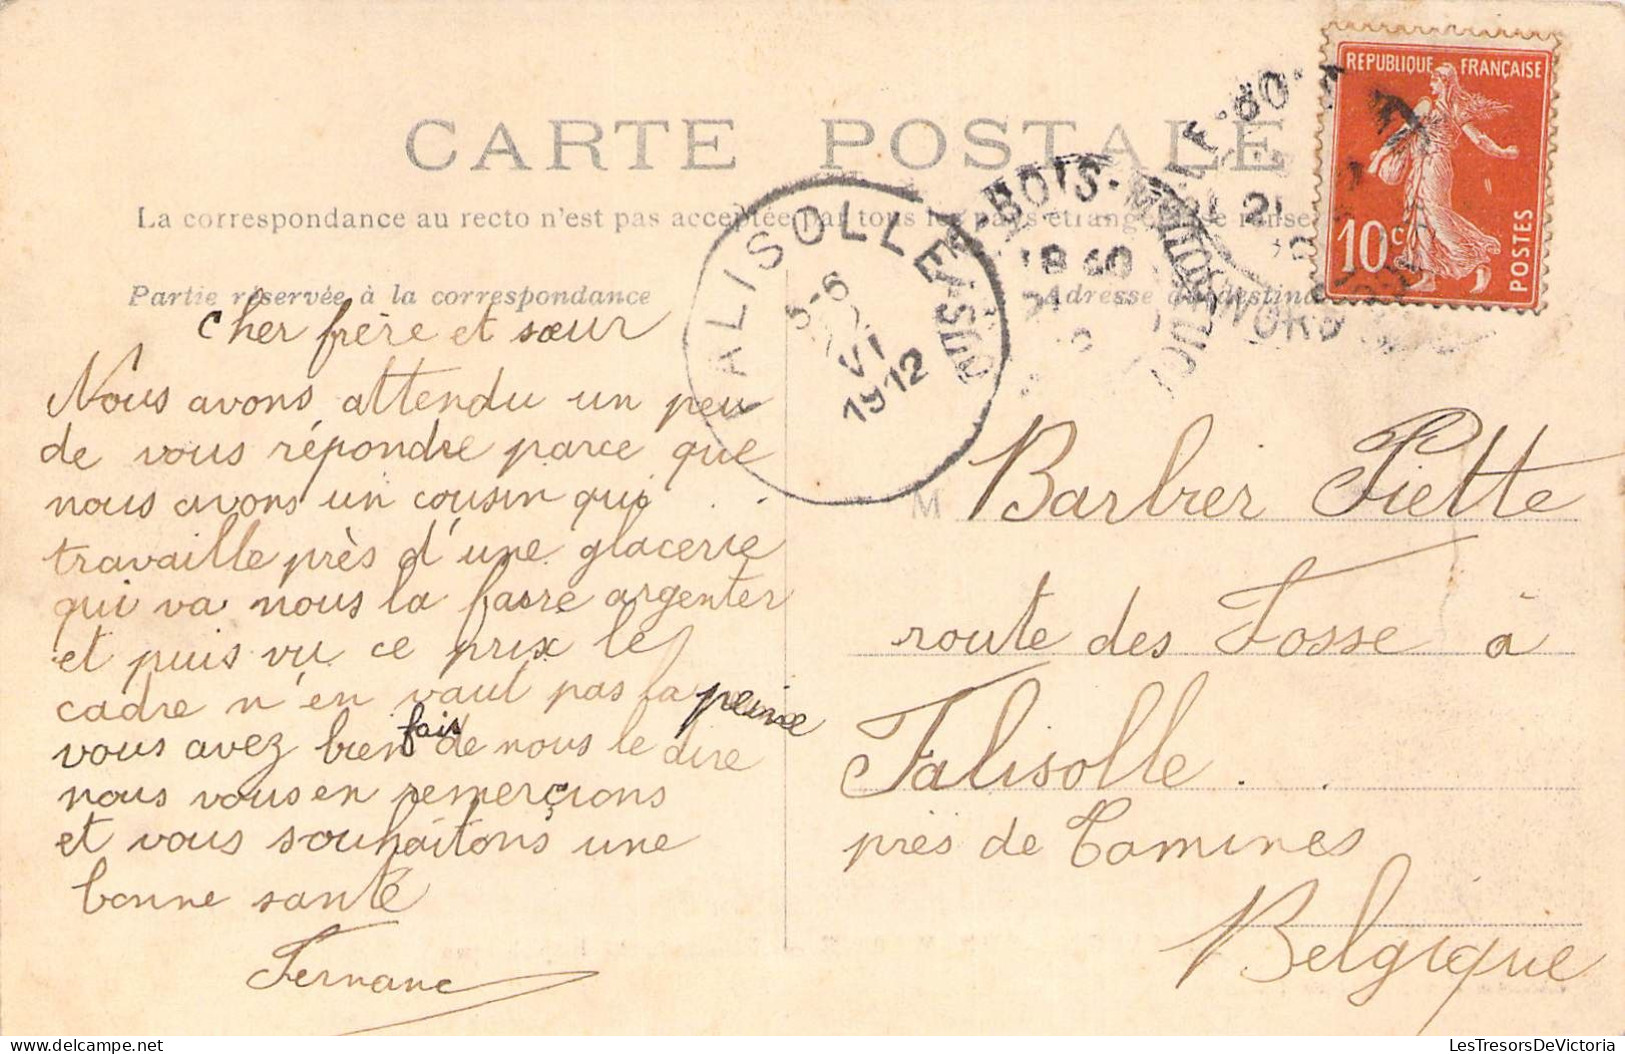 CARTE POSTALE
La correspondance au recto n'est pas acceptée par tous les pays étrangers
Partie réservée à la correspondance
Adresse du destinataire
REPUBLIQUE FRANÇAISE
10c POSTES
FALISOLLE
5-6
VI
1912
Cher frère et sœur
Nous avons attendu un peu
de vous répondre parce que
nous avons un cousin qui
travaille près d'une glacerie
qui va nous la faire argenter
et puis vu ce prix le
cadre n'en vaut pas la peine
vous avez bien fait de nous le dire
nous vous en remerçions
et vous souhaitons une
bonne santé
Fernand
M Barbier Piette
route des Fosse à
Falisolle
près de Tamines
Belgique
LesTresorsDeVictoria